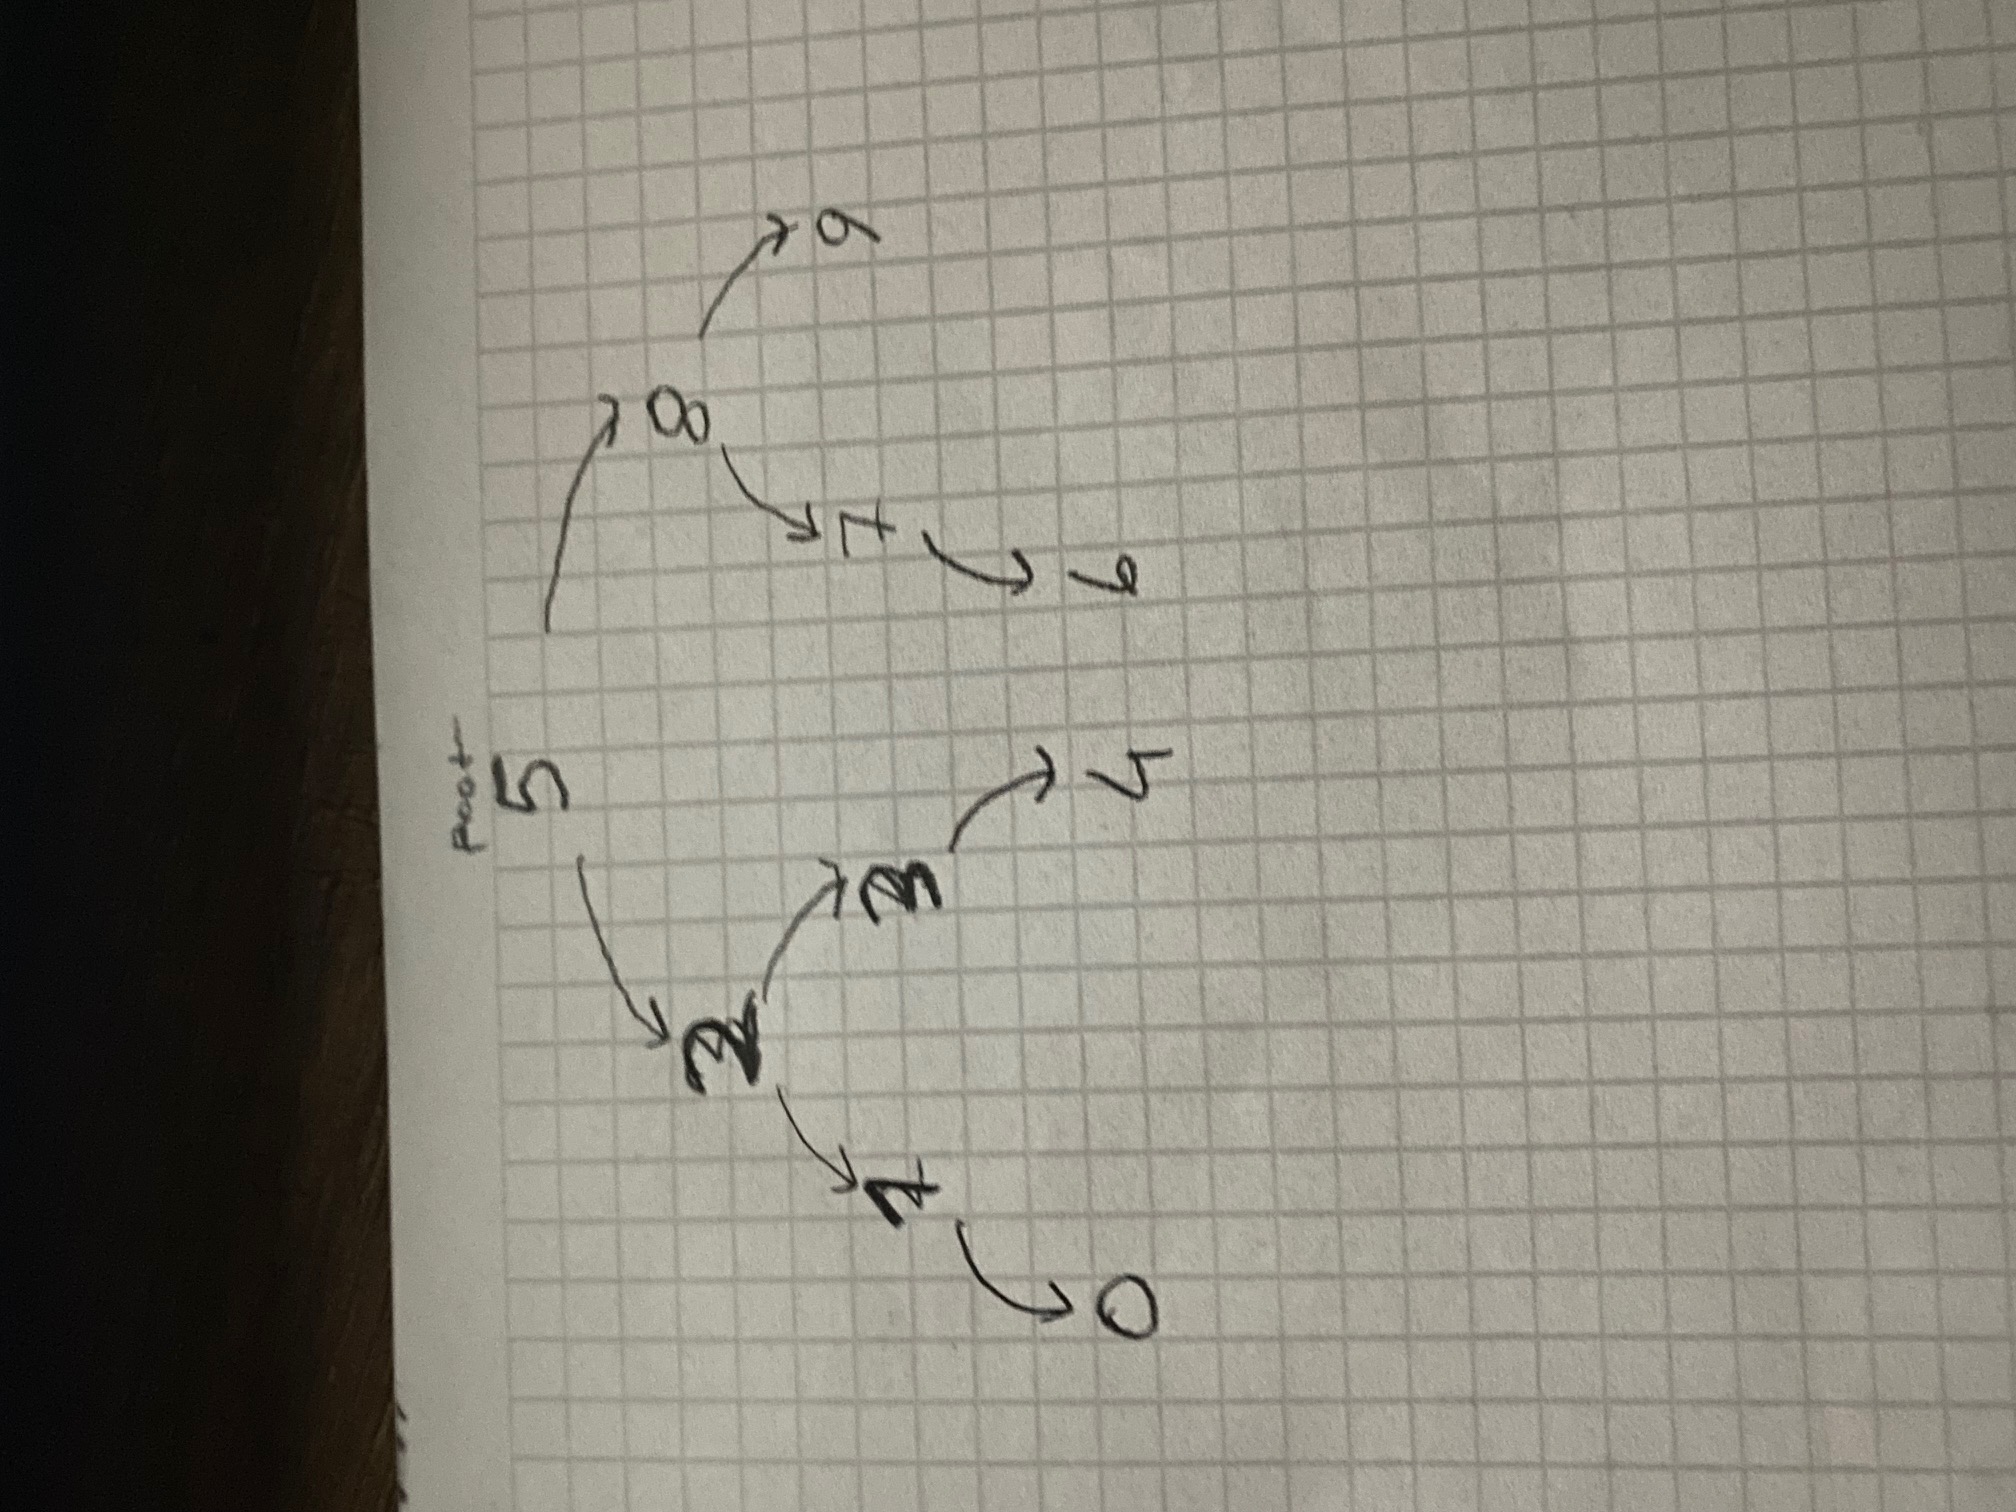 root
5
2 8
1 3 7 9
0 4 6